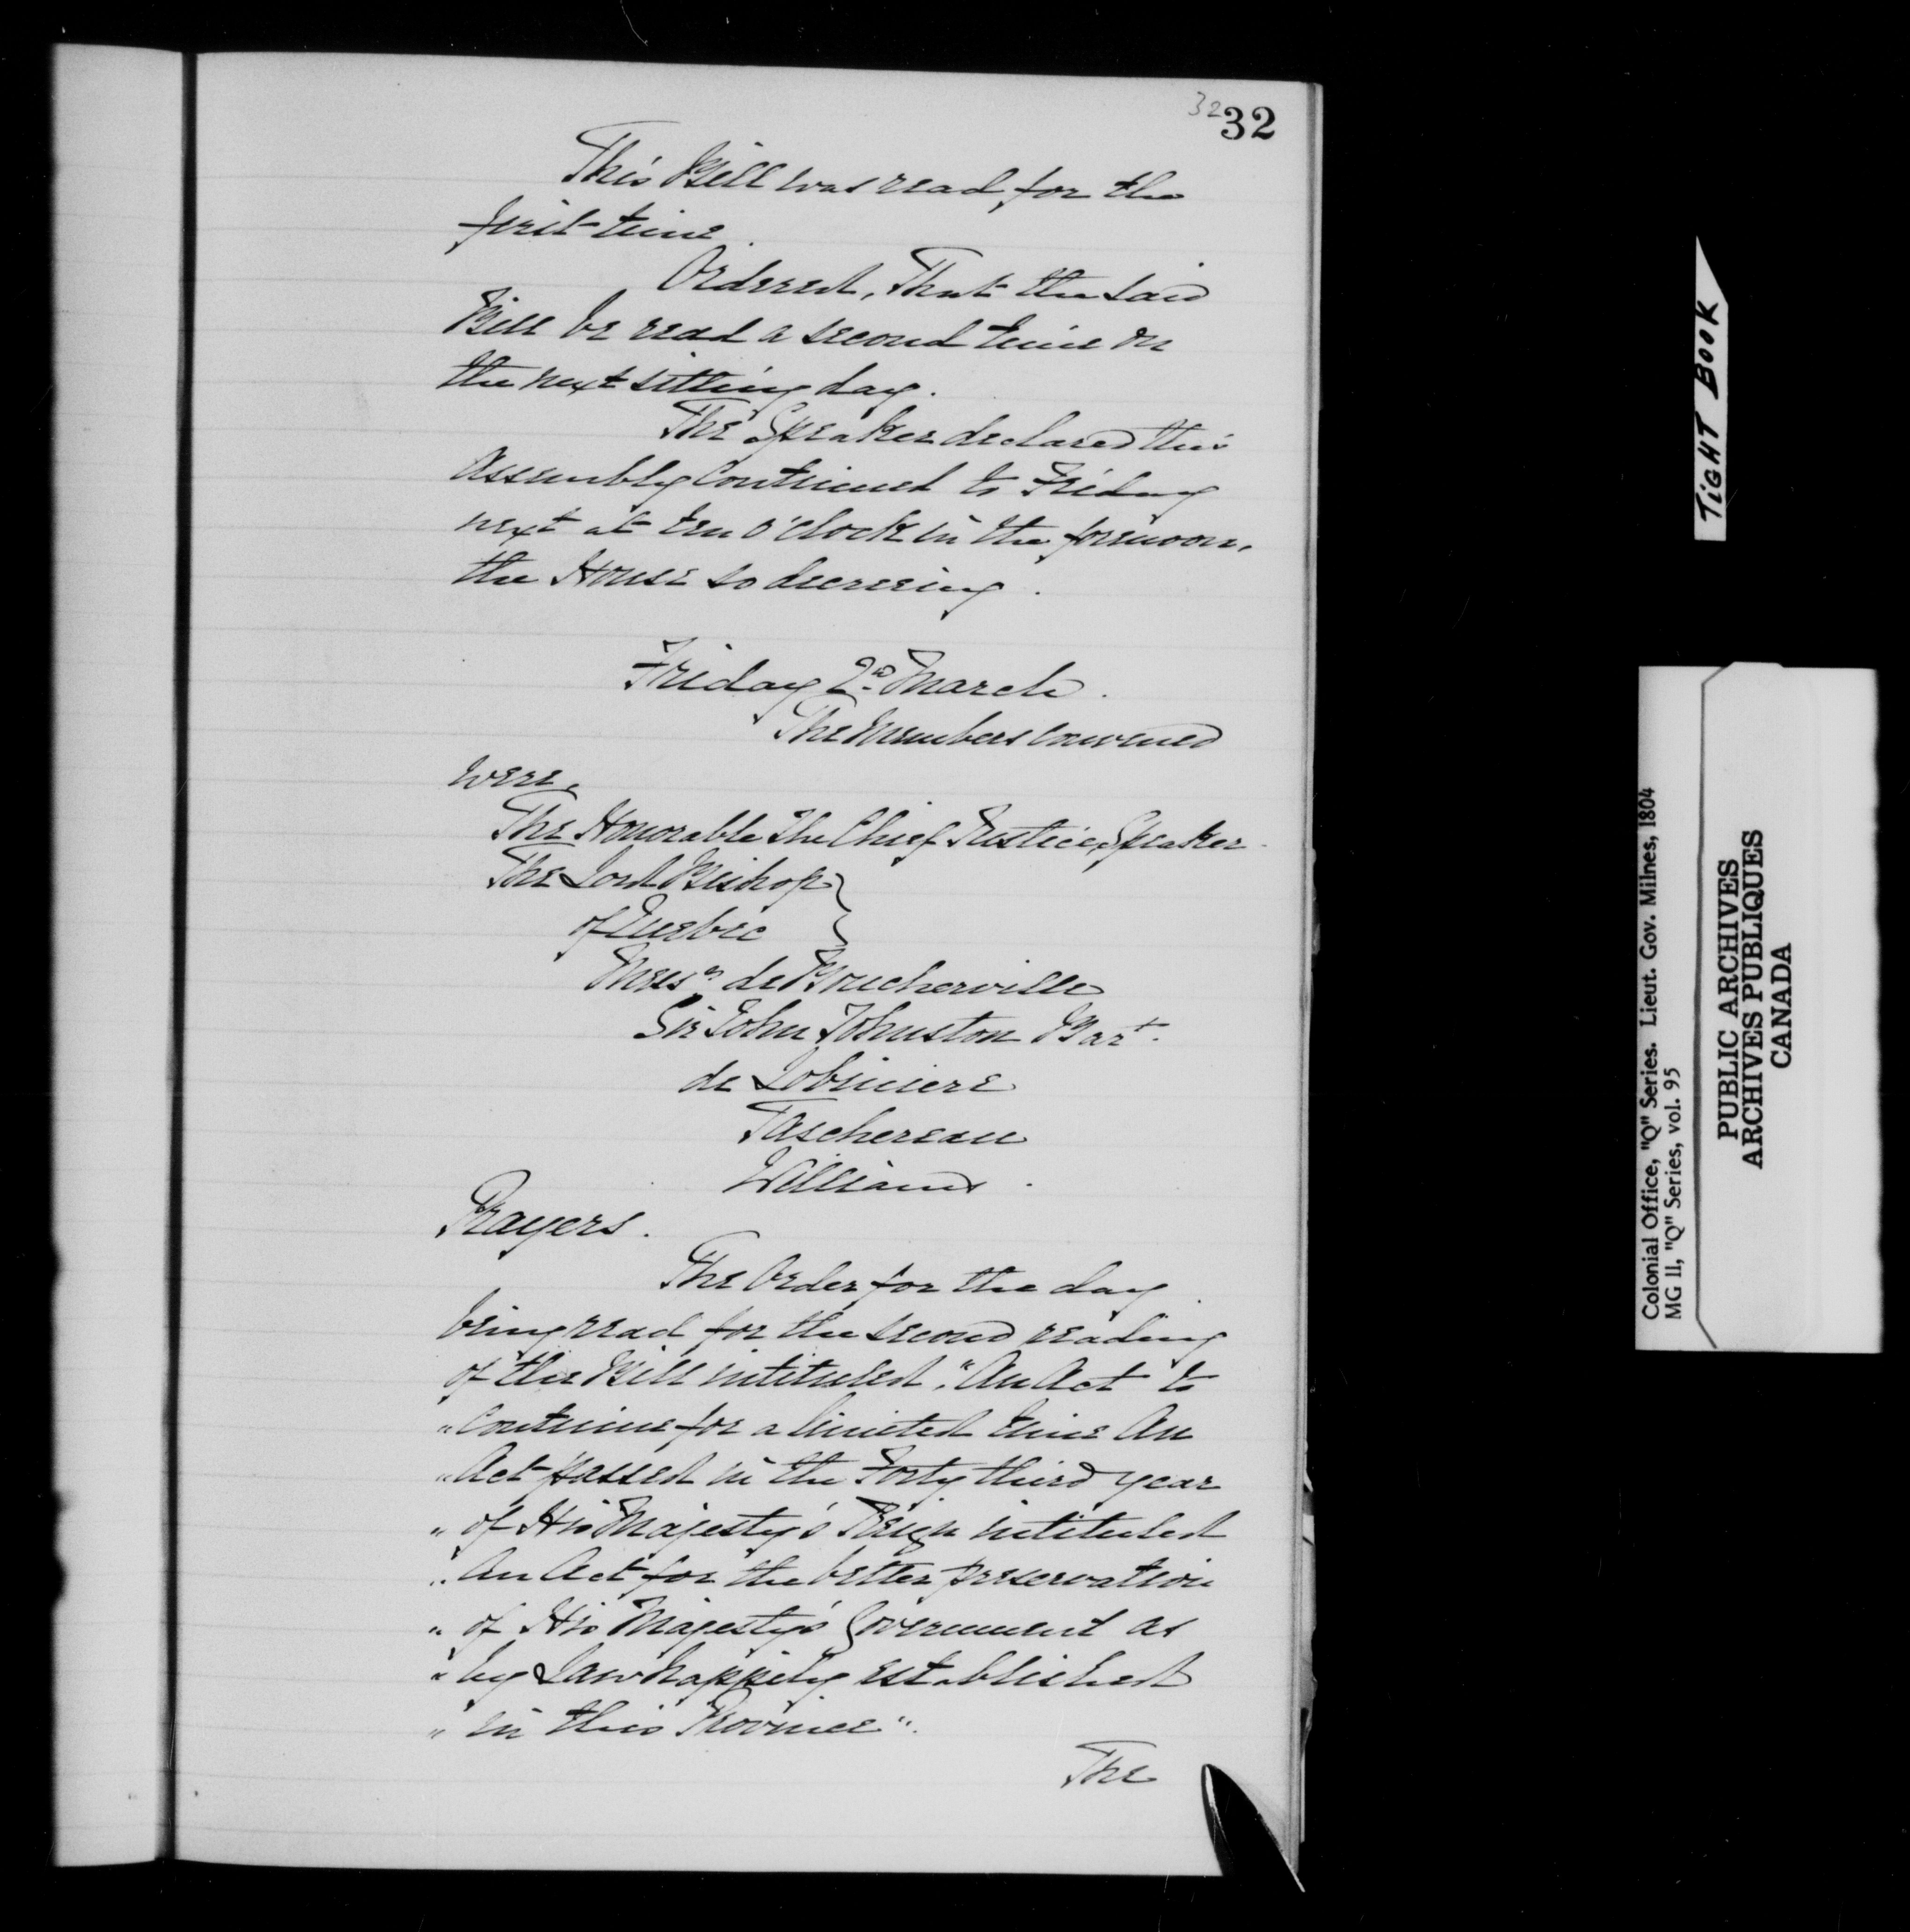 32 32
This Bill was read for the
first time.
Ordered, That the said
Bill be read a second time on
the next sitting day.
The Speaker declared this
Assembly Continued to Friday
next at ten o'clock in the forenoon,
the House so decreeing.
Friday 2d March.
The Members convened
were,
The Honorable The Chief Justice, Speaker.
The Lord Bishop
of Quebec
Messrs de Boucherville
Sir John Johnston Bart.
de Lobiniere
Taschereau
Williams.
Prayers.
The Order for the day
being read for the second reading
of the Bill intituled, "An Act to
"Continue for a limited time An
"Act passed in the Forty third year
"of His Majesty's Reign intituled
"An Act for the better preservation
"of His Majesty's Government as
"by Law happily established
"in this Province".
The
TIGHT BOOK
Colonial Office, "Q" Series. Lieut. Gov. Milnes, 1804
MG 11, "Q" Series, vol. 95
PUBLIC ARCHIVES
ARCHIVES PUBLIQUES
CANADA